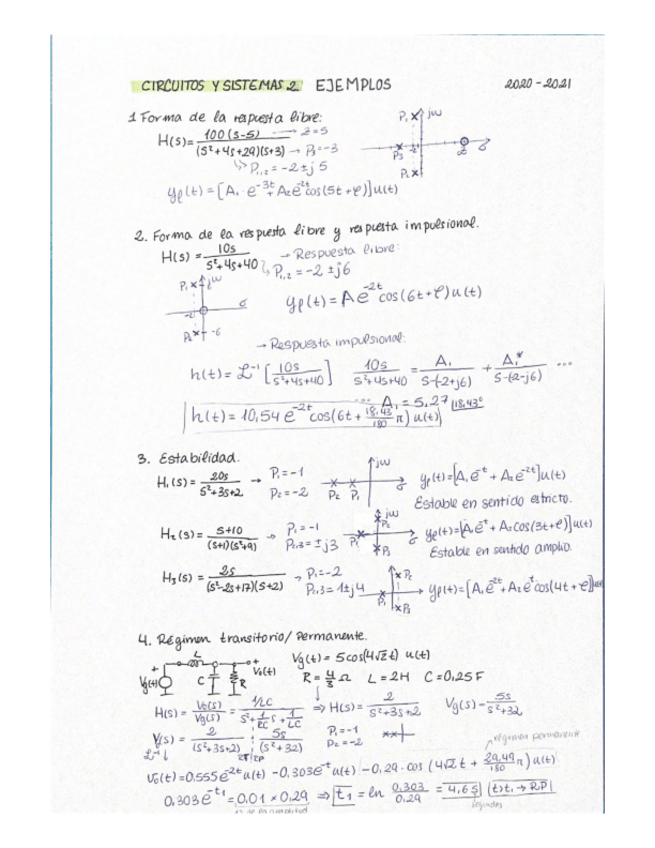 CIRCUITOS Y SISTEMAS 2 EJEMPLOS 2020-2021
1 Forma de la respuesta libre:
H(s) = 100(s-5) / (s²+4s+29)(s+3) → z=5 → P₃=-3
↳ P₁,₂ = -2 ± j5
P₁ jω P₃ -2 σ P₂
yℓ(t) = [A₁·e^-3t + A₂e^-2t cos(5t+φ)]u(t)
2. Forma de la respuesta libre y respuesta impulsional.
H(s) = 10s / s²+4s+40 → Respuesta libre:
↳ P₁,₂ = -2 ± j6
P₁ jω σ -2 P₂ -6
yℓ(t) = Ae^-2t cos(6t+φ)u(t)
→ Respuesta impulsional:
h(t) = L⁻¹ [10s / s²+4s+40] 10s / s²+4s+40 = A₁ / s-(-2+j6) + A₁* / s-(-2-j6) ...
... A₁ = 5,27 |18,43°
h(t) = 10,54 e^-2t cos(6t + 18,43/180 π) u(t)
3. Estabilidad.
H₁(s) = 20s / s²+3s+2 → P₁=-1 P₂=-2
P₂ P₁ jω σ
yℓ(t) = [A₁e^-t + A₂e^-2t]u(t)
Estable en sentido estricto.
H₂(s) = s+10 / (s+1)(s²+9) → P₁=-1 P₂,₃=±j3
jω P₂ P₁ P₃ σ
yℓ(t) = [A₁e^-t + A₂cos(3t+φ)]u(t)
Estable en sentido amplio.
H₃(s) = 2s / (s²-2s+17)(s+2) → P₁=-2 P₂,₃=1±j4
P₁ P₂ P₃
yℓ(t) = [A₁e^-2t + A₂e^t cos(4t+φ)]
4. Régimen transitorio/Permanente.
+ L + Vg(t) C R V₀(t)
Vg(t) = 5cos(4√2 t) u(t)
R = 4/3 Ω L = 2H C = 0,25F
H(s) = V₀(s) / Vg(s) = 1/LC / s²+ 1/RC s + 1/LC ⇒ H(s) = 2 / s²+3s+2 Vg(s) = 5s / s²+32
V₀(s) = 2 / (s²+3s+2) · 5s / (s²+32) P₁=-1 P₂=-2
L⁻¹↓ RT RP régimen permanente
V₀(t) = 0,555e^-2t u(t) - 0,303e^-t u(t) - 0,29·cos(4√2 t + 29,49/180 π) u(t)
0,303e^-t₁ = 0,01 × 0,29 ⇒ t₁ = ln 0,303/0,29 = 4,6s (t>t₁ → RP)
1% de la amplitud segundos